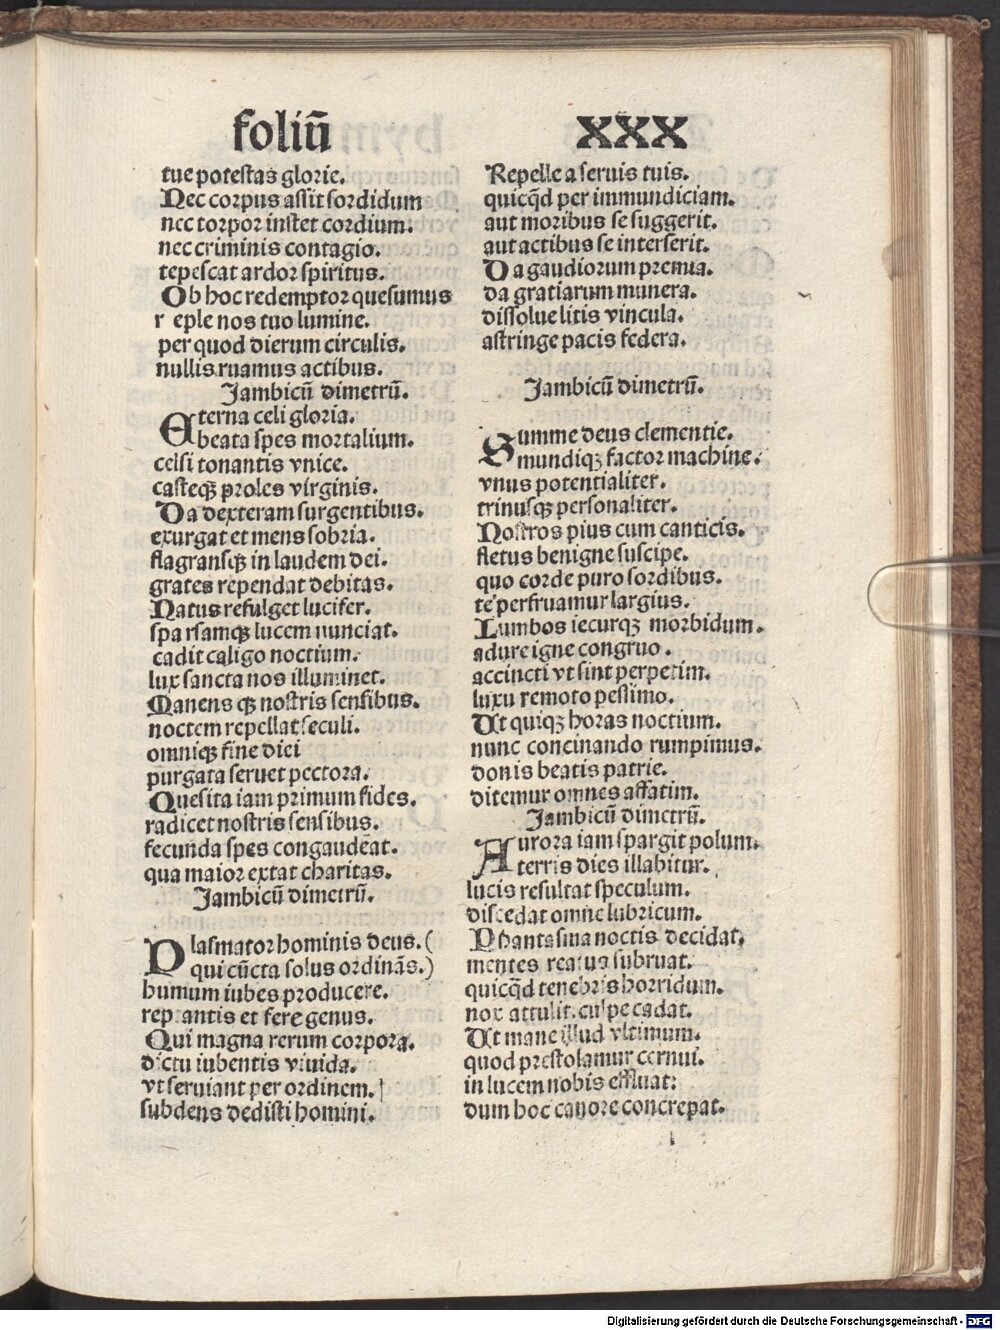 foliū XXX
tue potestas glorie.
Nec corpus assit sordidum
nec torpor instet cordium.
nec criminis contagio.
tepescat ardor spiritus.
Ob hoc redemptor quesumus
r eple nos tuo lumine.
per quod dierum circulis.
nullis ruamus actibus.
Jambicū dimetrū.
Eterna celi gloria.
beata spes mortalium.
celsi tonantis vnice.
casteqꝫ proles virginis.
Da dexteram surgentibus.
exurgat et mens sobria.
flagransqꝫ in laudem dei.
grates rependat debitas.
Natus refulget lucifer.
spa rsamqꝫ lucem nunciat.
cadit caligo noctium.
lux sancta nos illuminet.
Manens qꝫ nostris sensibus.
noctem repellat seculi.
omniqꝫ fine diei
purgata seruet pectora.
Quesita iam primum fides.
radicet nostris sensibus.
fecunda spes congaudeat.
qua maior extat charitas.
Jambicū dimetrū.
Plasmator hominis deus. (
qui cūcta solus ordinās.)
humum iubes producere.
reptantis et fere genus.
Qui magna rerum corpora.
dictu iubentis viuida.
vt seruiant per ordinem.
subdens dedisti homini.
Repelle a seruis tuis.
quicq̄d per immundiciam.
aut moribus se suggerit.
aut actibus se interserit.
Da gaudiorum premia.
da gratiarum munera.
dissolue litis vincula.
astringe pacis federa.
Jambicū dimetrū.
Summe deus clementie.
mundiqꝫ factor machine.
vnus potentialiter.
trinusqꝫ personaliter.
Nostros pius cum canticis.
fletus benigne suscipe.
quo corde puro sordibus.
te perfruamur largius.
Lumbos iecurqꝫ morbidum.
adure igne congruo.
accincti vt sint perpetim.
luxu remoto pessimo.
Ut quiqꝫ horas noctium.
nunc concinando rumpimus.
donis beatis patrie.
ditemur omnes affatim.
Jambicū dimetrū.
Aurora iam spargit polum.
terris dies illabitur.
lucis resultat speculum.
discedat omne lubricum.
Phantasma noctis decidat.
mentes reatus subruat.
quicq̄d tenebris horridum.
nox attulit culpe cadat.
Ut mane illud vltimum.
quod prestolamur cernui.
in lucem nobis effluat:
dum hoc canore concrepat.
Digitalisierung gefördert durch die Deutsche Forschungsgemeinschaft - DFG